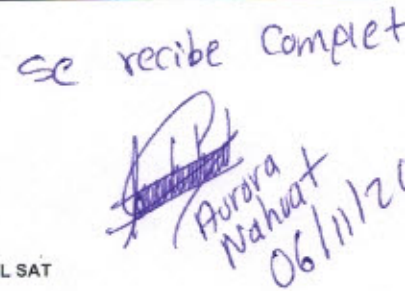 se recibe Complet
Aurora
Nahuat
06/11/20
L SAT